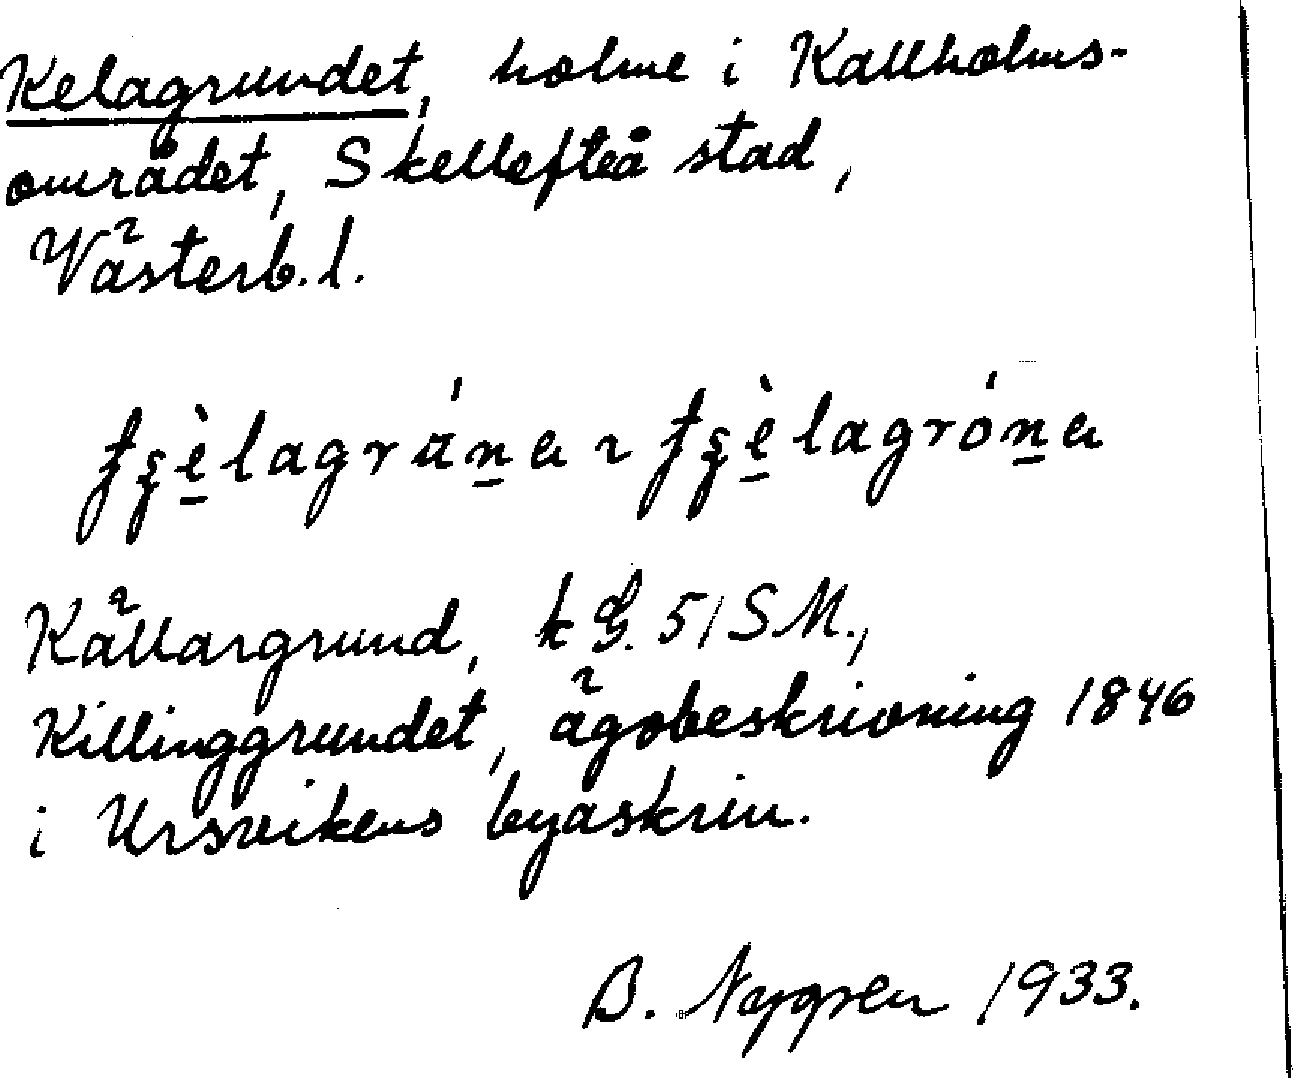 Kelagrundet, holme i Kallholms-
området, Skellefteå stad,
Västerb. l.
Källargrund, k G. 51 SM.,
Killinggrundet, ägobeskrivning 1846
i Ursvikens byaskrin.
B. Nygren 1933.